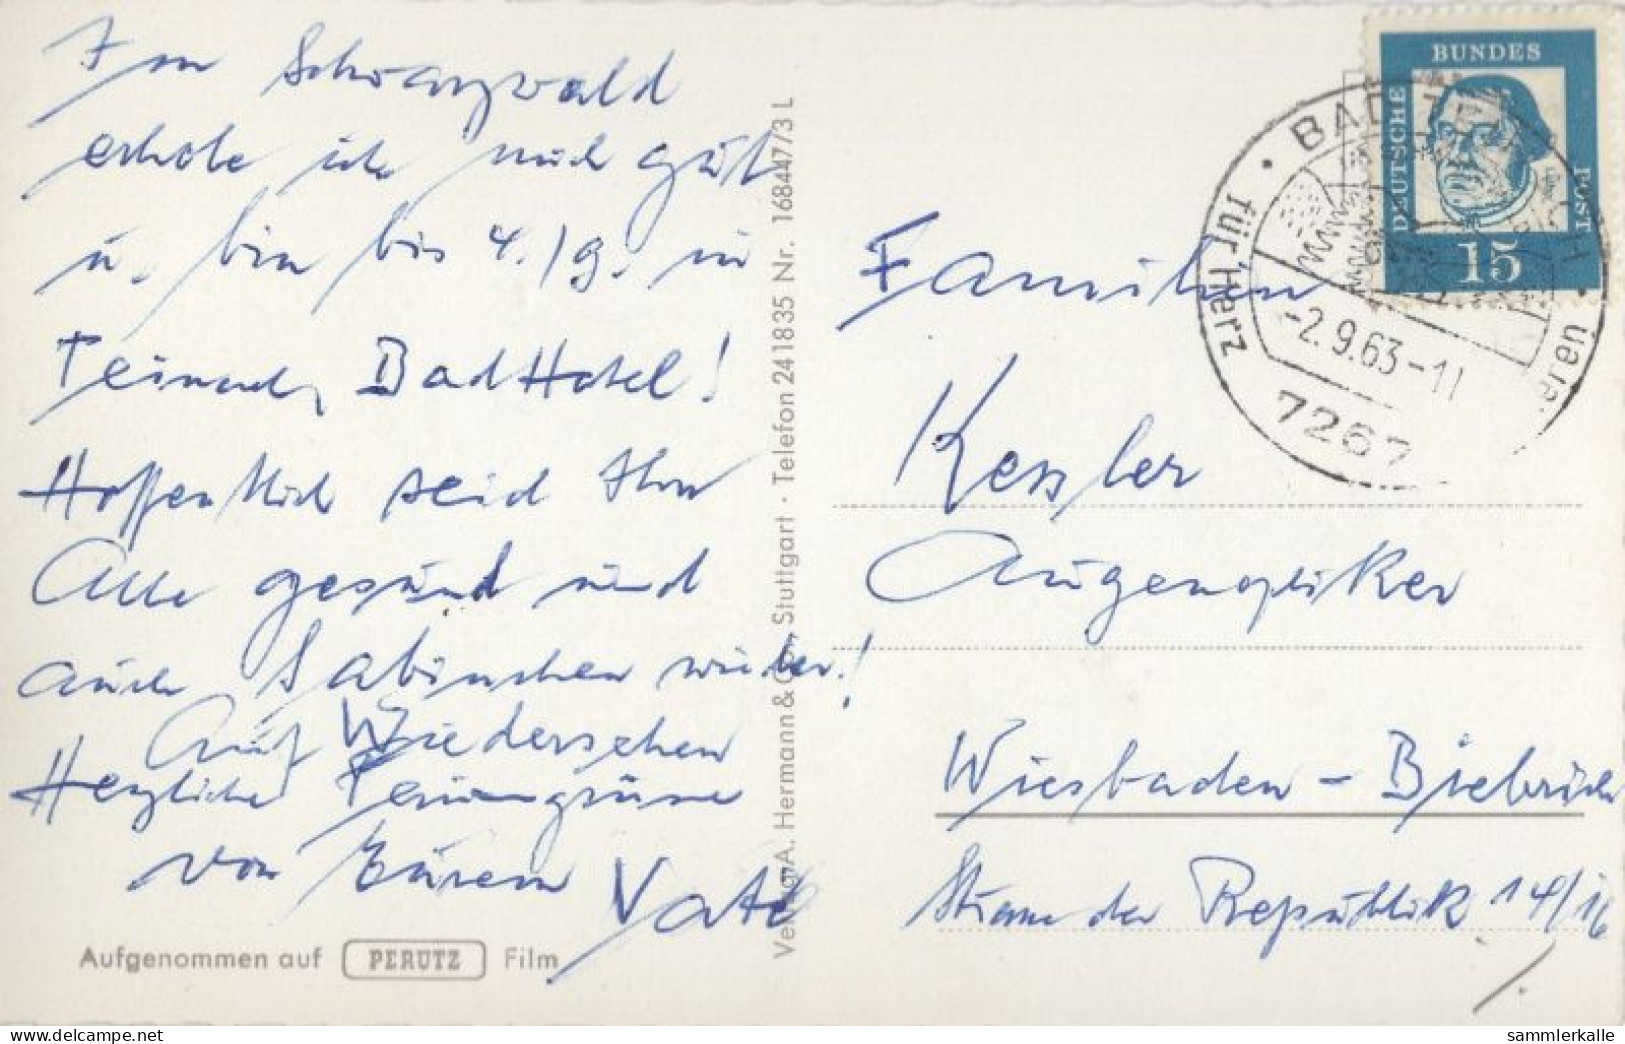 Im Schwarzwald
erhole ich mich gut
u. bin bis 4./9. in
Teinach, Bad Hotel!
Hoffentlich seid Ihr
Alle gesund und
auch Sabinchen wieder!
Auf Wiedersehen
Herzliche Feriengrüsse
von Eurem Vater
Aufgenommen auf PERUTZ Film
Verlag A. Hermann & Co., Stuttgart · Telefon 241835 Nr. 168447/3 L
DEUTSCHE BUNDES POST
15
BAD
für Herz
-2.9.63-11
7267
Familien
Kessler
Augenoptiker
Wiesbaden - Biebrich
Strasse der Republik 14/16
www.delcampe.net
sammlerkalle